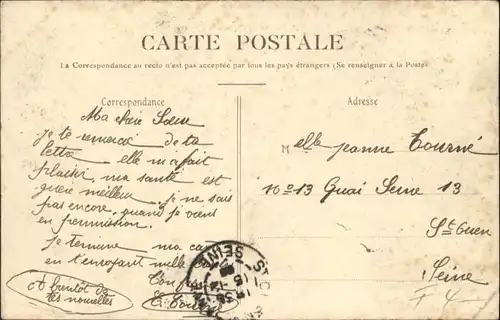 CARTE POSTALE
La Correspondance au recto n'est pas acceptée par tous les pays étrangers (Se renseigner à la Poste)
Correspondance
Ma chère Sœur
je te remerci de ta
lettre elle m'a fait
plaisir, ma santé est
guère meilleur, je ne sais
pas encore, quand je vient
en permission.
Je termine ma
en t'envoyant mille
Ton
E. Tour
à bientôt de
tes nouvelles
Adresse
Melle Jeanne Tourné
10 13 Quai Seine 13
St Ouen
Seine
SEINE